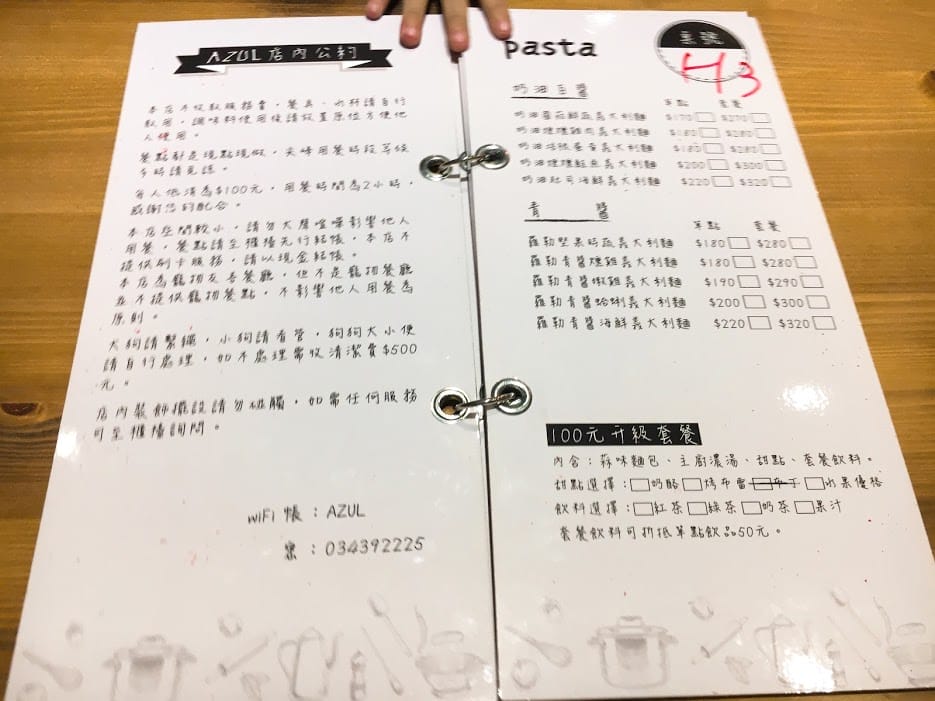 AZUL店內公約
本店不收取服務費，餐具、水杯請自行
取用，調味料使用後請放置原位方便他
人使用。
餐點都是現點現做，尖峰用餐時段等候
多時請見諒。
每人低消為$100元，用餐時間為2小時，
感謝您的配合。
本店空間較小，請勿大聲喧嘩影響他人
用餐，餐點請至櫃檯先行結帳，本店不
提供刷卡服務，請以現金結帳。
本店為寵物友善餐廳，但不是寵物餐廳
並不提供寵物餐點，不影響他人用餐為
原則。
犬狗請繫繩，小狗請看管，狗狗大小便
請自行處理，如不處理需收清潔費$500
元。
店內裝飾擺設請勿碰觸，如需任何服務
可至櫃檯詢問。
WiFi 帳：AZUL
密：034392225
pasta
桌號
H3
奶油白醬 單點 套餐
奶油蕃茄鮮蔬義大利麵 $170 $270
奶油燻雞義大利麵 $180 $280
奶油培根蛋香義大利麵 $180 $280
奶油燻鮭魚義大利麵 $200 $300
奶油起司海鮮義大利麵 $220 $320
青醬 單點 套餐
羅勒堅果時蔬義大利麵 $180 $280
羅勒青醬燻雞義大利麵 $180 $280
羅勒青醬嫩雞義大利麵 $190 $290
羅勒青醬蛤蜊義大利麵 $200 $300
羅勒青醬海鮮義大利麵 $220 $320
100元升級套餐
內含：蒜味麵包、主廚濃湯、甜點、套餐飲料。
甜點選擇：□奶酪□烤布蕾□布丁□水果優格
飲料選擇：□紅茶□綠茶□奶茶□果汁
套餐飲料可折抵單點飲品50元。